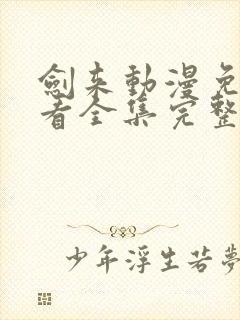 劍来動漫免
看全集完整
少年浮生若夢